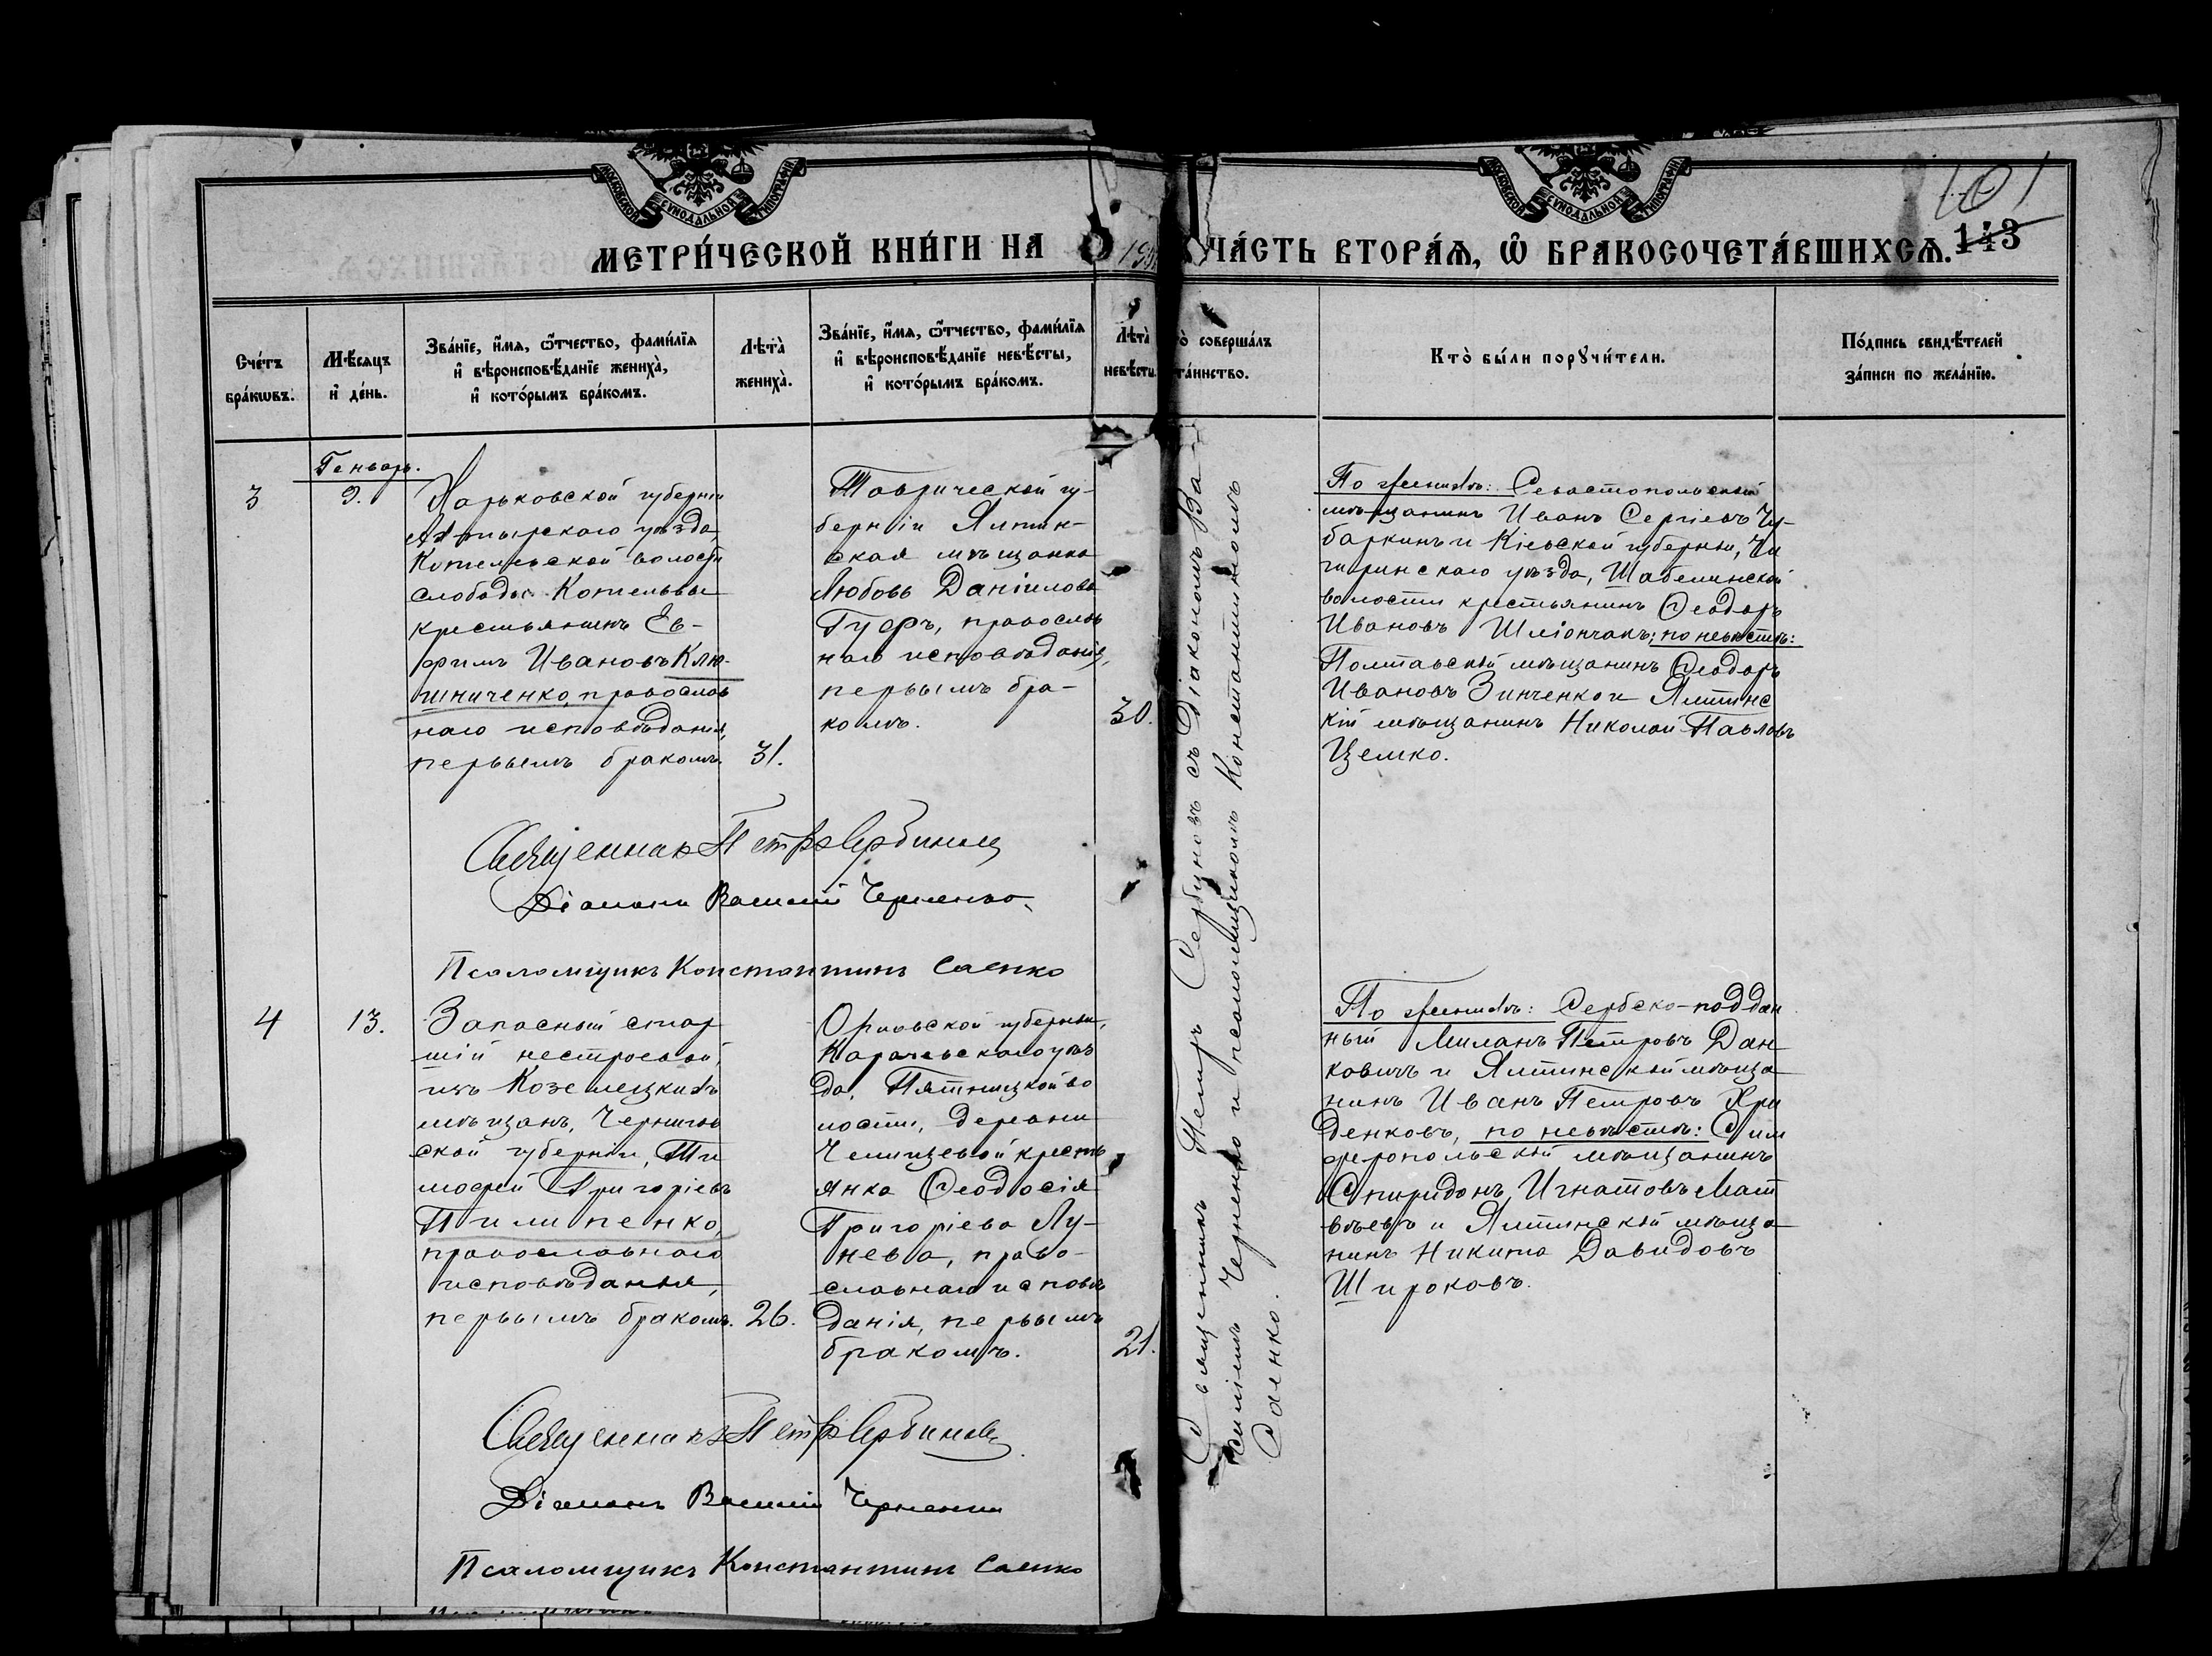 МОСКОВСКОЙ СѴНОДАЛЬНОЙ ТИПОГРАФІИ
МОСКОВСКОЙ СѴНОДАЛЬНОЙ ТИПОГРАФІИ
101
143
МЕТРИ́ЧЕСКОЙ КНИ́ГИ НА
ЧА́СТЬ ВТОРА́Ѧ, Ѽ БРАКОСОЧЕТА́ВШИХСѦ.
Сче́тъ
бра́кѡвъ.
Мѣ́сяцъ
и҆ де́нь.
Зва́нїе, и҆́мѧ, ѻ҆́тчество, фами́лїѧ
и҆ вѣроисповѣ́данїе жениха̀,
и҆ кото́рымъ бра́комъ.
Лѣта̀
жениха̀.
Зва́нїе, и҆́мѧ, ѻ҆́тчество, фами́лїѧ
и҆ вѣроисповѣ́данїе невѣ́сты,
и҆ кото́рымъ бра́комъ.
Лѣта̀
невѣ́сты
соверша́лъ
та́инство.
Кто̀ бы́ли порꙋчи́тели.
По́дпись свидѣ́телей
за́писи по жела́нїю.
3
Геньварь.
9.
Харьковской губерніи
Ахтырскаго уѣзда,
Котелевской волости
слободы Котельвы
крестьянинъ Ев-
фимъ Ивановъ Клю-
шниченко, православ
наго исповѣданія,
первымъ бракомъ.
31.
Таврической гу-
берніи Ялтин-
ская мѣщанка
Любовь Даніилова
Гусръ, православ
наго исповѣданія,
первымъ бра-
комъ.
30.
Священникъ Петръ Сербиновъ съ Діакономъ Ва-
силіемъ Черненко и псаломщикомъ Константиномъ
Саенко.
По женихѣ: Севастопольскій
мѣщанинъ Иванъ Сергіевъ Чу-
баркинъ и Кіевской губерніи, Чи
гиринскаго уѣзда, Шабелинской
волости крестьянинъ Ѳеодоръ
Ивановъ Шліончакъ; по невѣстѣ:
Полтавскій мѣщанинъ Ѳеодоръ
Ивановъ Зинченко и Ялтинс
кій мѣщанинъ Николай Павловъ
Цемко.
Священникъ Петръ Сербиновъ
Діаконъ Василій Черненко,
Псаломщикъ Константинъ Саенко
4
13.
Запасный стар
шій нестроевой,
изъ Козелецкихъ
мѣщанъ, Чернигов
ской губерніи, Ти
моѳей Григоріевъ
Пилипенко,
православнаго
исповѣданія,
первымъ бракомъ.
26.
Орловской губерніи,
Карачевскаго уѣз
да, Пятницкой во
лости, деревни
Чемищевой кресть
янка Ѳеодосія
Григоріева Лу-
нева, право-
славнаго исповѣ
данія, первымъ
бракомъ.
21.
По женихѣ: Сербско-поддан
ный Миланъ Петровъ Дан
ковичъ и Ялтинскій мѣща
нинъ Иванъ Петровъ Хри
денковъ, по невѣстѣ: Сим
феропольскій мѣщанинъ
Спиридонъ Игнатовъ Мат
вѣевъ и Ялтинскій мѣща
нинъ Никита Давидовъ
Широковъ.
Священникъ Петръ Сербиновъ
Діаконъ Василій Черненко
Псаломщикъ Константинъ Саенко